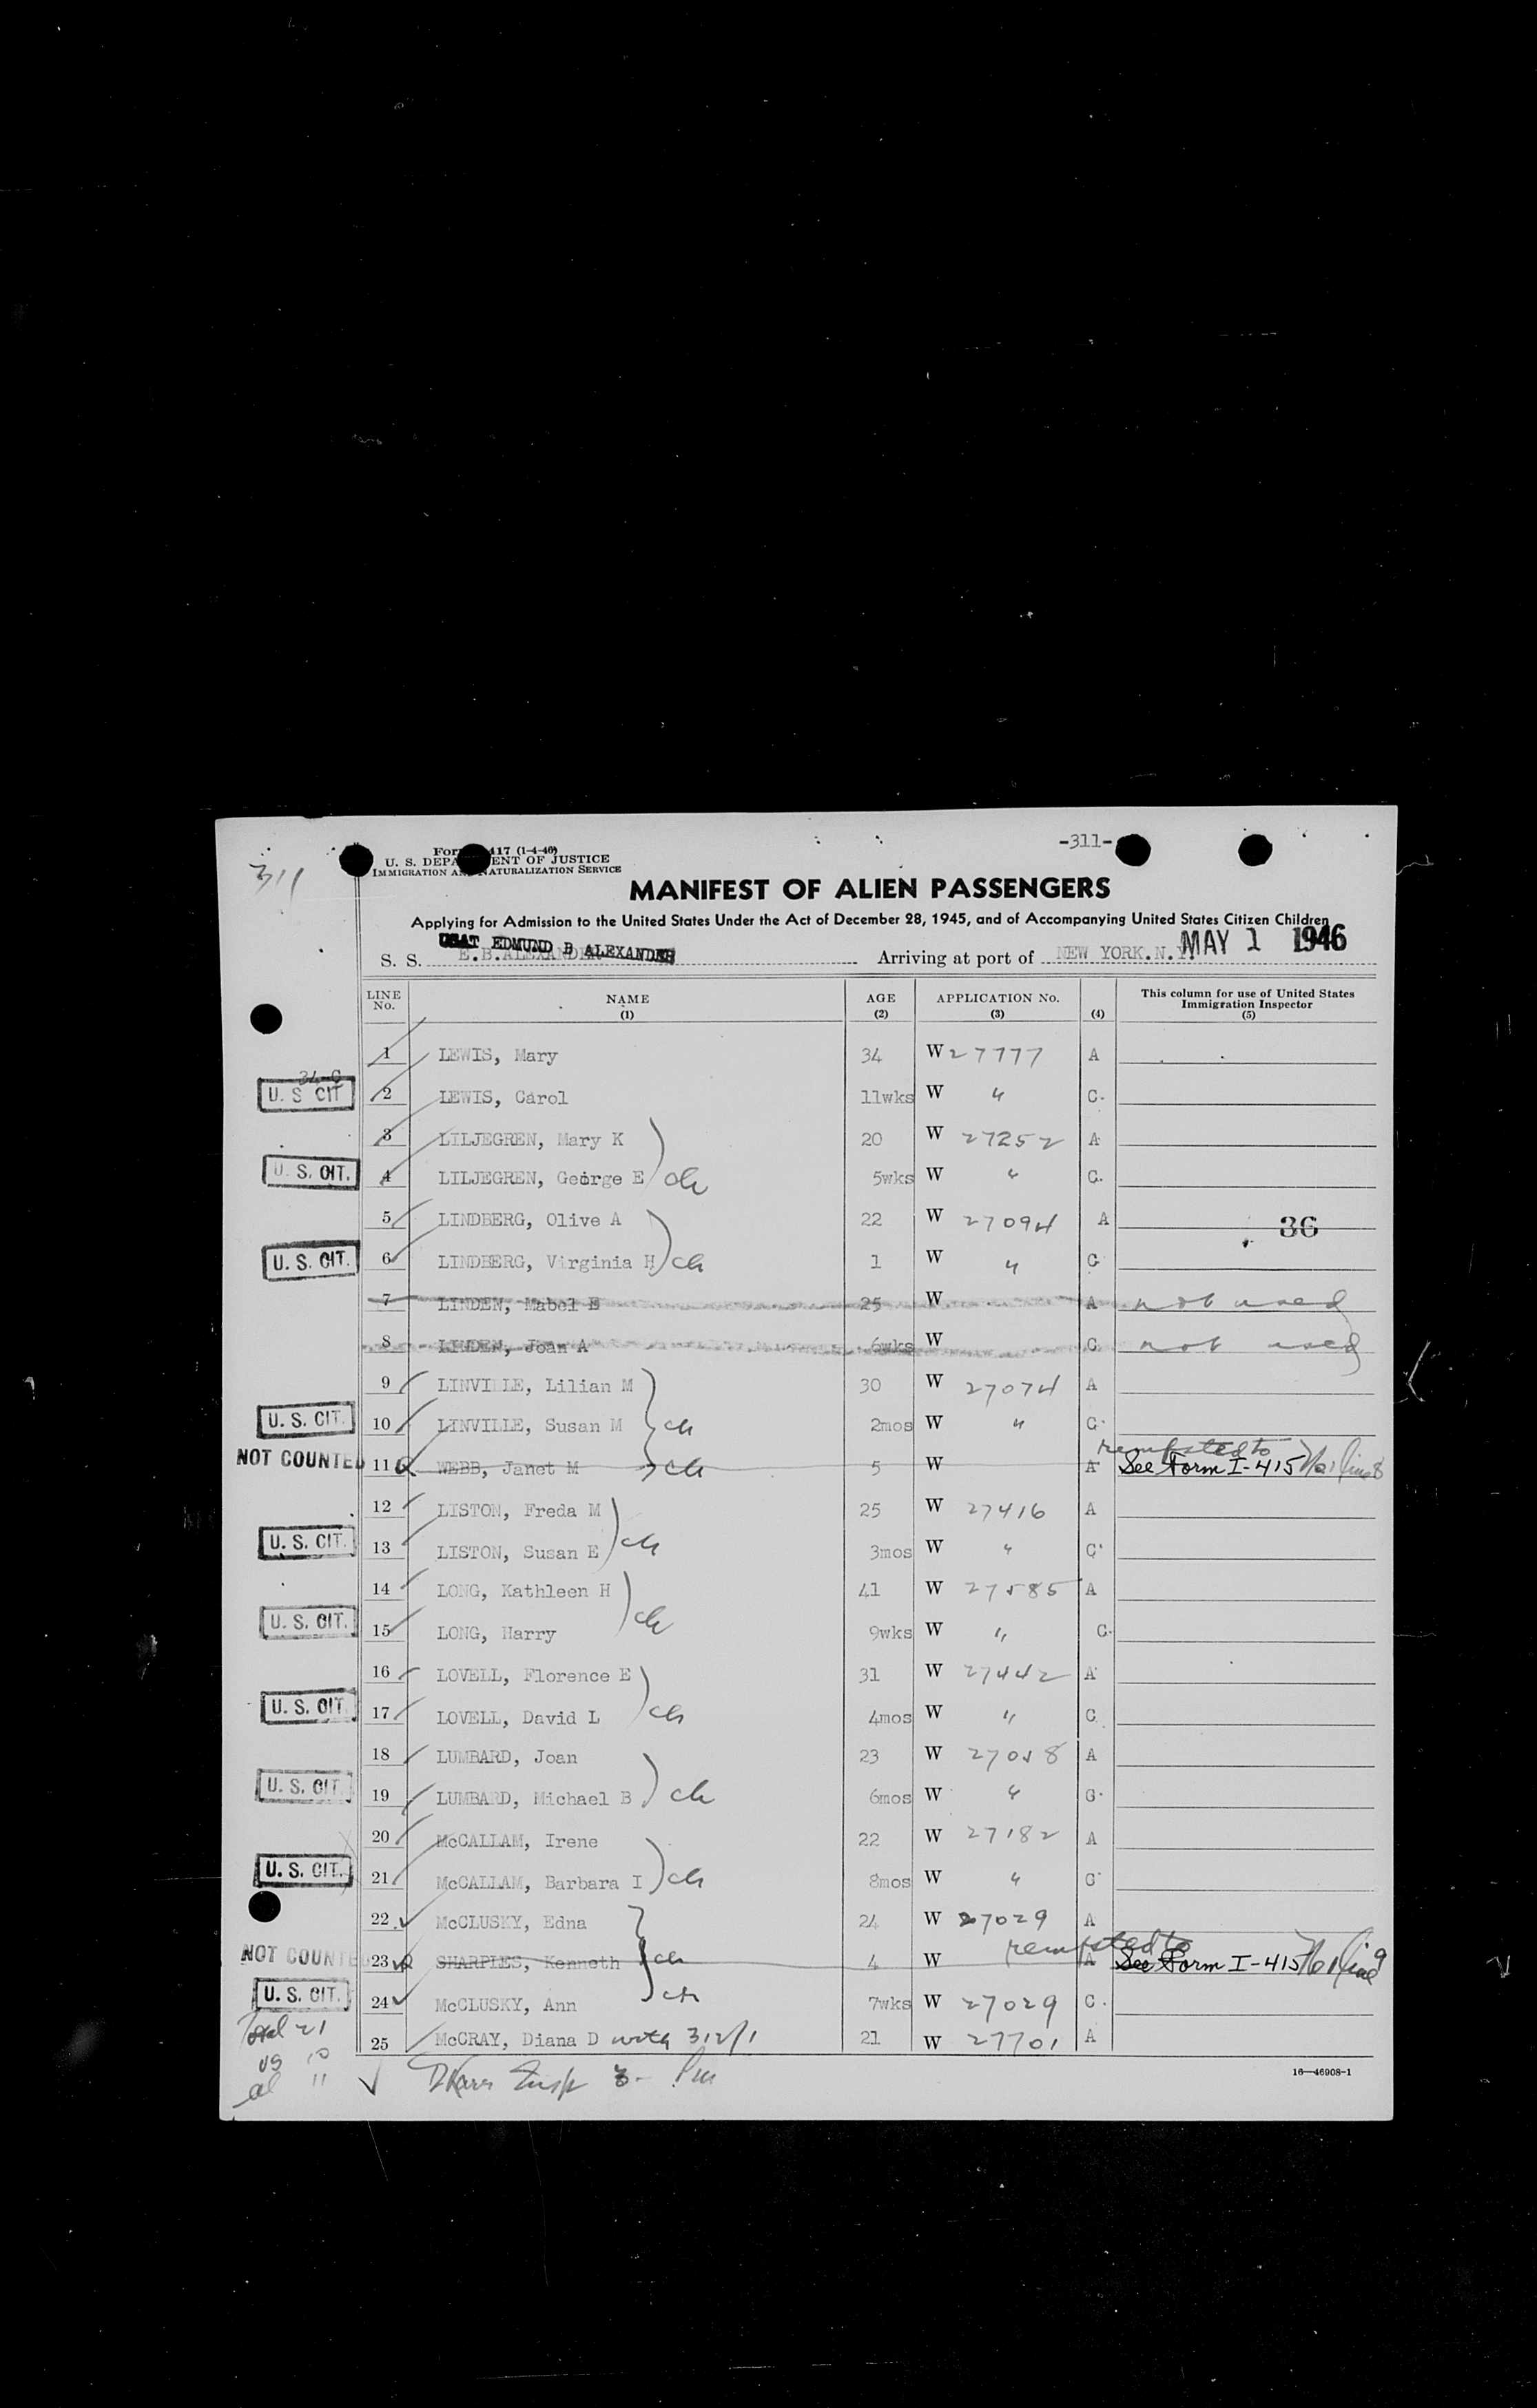 311
-311-
Form I-417 (1-4-46)
U. S. DEPARTMENT OF JUSTICE
IMMIGRATION AND NATURALIZATION SERVICE
MANIFEST OF ALIEN PASSENGERS
Applying for Admission to the United States Under the Act of December 28, 1945, and of Accompanying United States Citizen Children
USAT EDMUND B ALEXANDER
S. S. E.B.ALEXANDER Arriving at port of NEW YORK.N.Y. MAY 1 1946
LINE No. NAME (1) AGE (2) APPLICATION No. (3) (4) This column for use of United States Immigration Inspector (5)
1 LEWIS, Mary 34 W 27777 A
U. S CIT 2 LEWIS, Carol 11wks W " C.
3 LILJEGREN, Mary K 20 W 27252 A
U. S. CIT. 4 LILJEGREN, George E ch 5wks W " C.
5 LINDBERG, Olive A 22 W 27094 A 36
U. S. CIT. 6 LINDBERG, Virginia H ch 1 W " C
7 LINDEN, Mabel E 25 W A not used
8 LINDEN, Joan A 6wks W C not used
9 LINVILLE, Lilian M 30 W 27074 A
U. S. CIT. 10 LINVILLE, Susan M ch 2mos W " C
NOT COUNTED 11 WEBB, Janet M ch 5 W A See Form I-415
12 LISTON, Freda M 25 W 27416 A
U. S. CIT. 13 LISTON, Susan E ch 3mos W " C
14 LONG, Kathleen H 41 W 27585 A
U. S. CIT. 15 LONG, Harry ch 9wks W " C.
16 LOVELL, Florence E 31 W 27442 A
U. S. CIT. 17 LOVELL, David L ch 4mos W " C
18 LUMBARD, Joan 23 W 27058 A
U. S. CIT. 19 LUMBARD, Michael B ch 6mos W " C
20 McCALLAM, Irene 22 W 27182 A
U. S. CIT. 21 McCALLAM, Barbara I ch 8mos W " C
22 McCLUSKY, Edna 24 W 27029 A
NOT COUNTED 23 SHARPLES, Kenneth ch 4 W A See Form I-415
U. S. CIT. 24 McCLUSKY, Ann ch 7wks W 27029 C.
25 McCRAY, Diana D with 312/1 21 W 27701 A
Total 21
us 10
al 11
16—46908-1